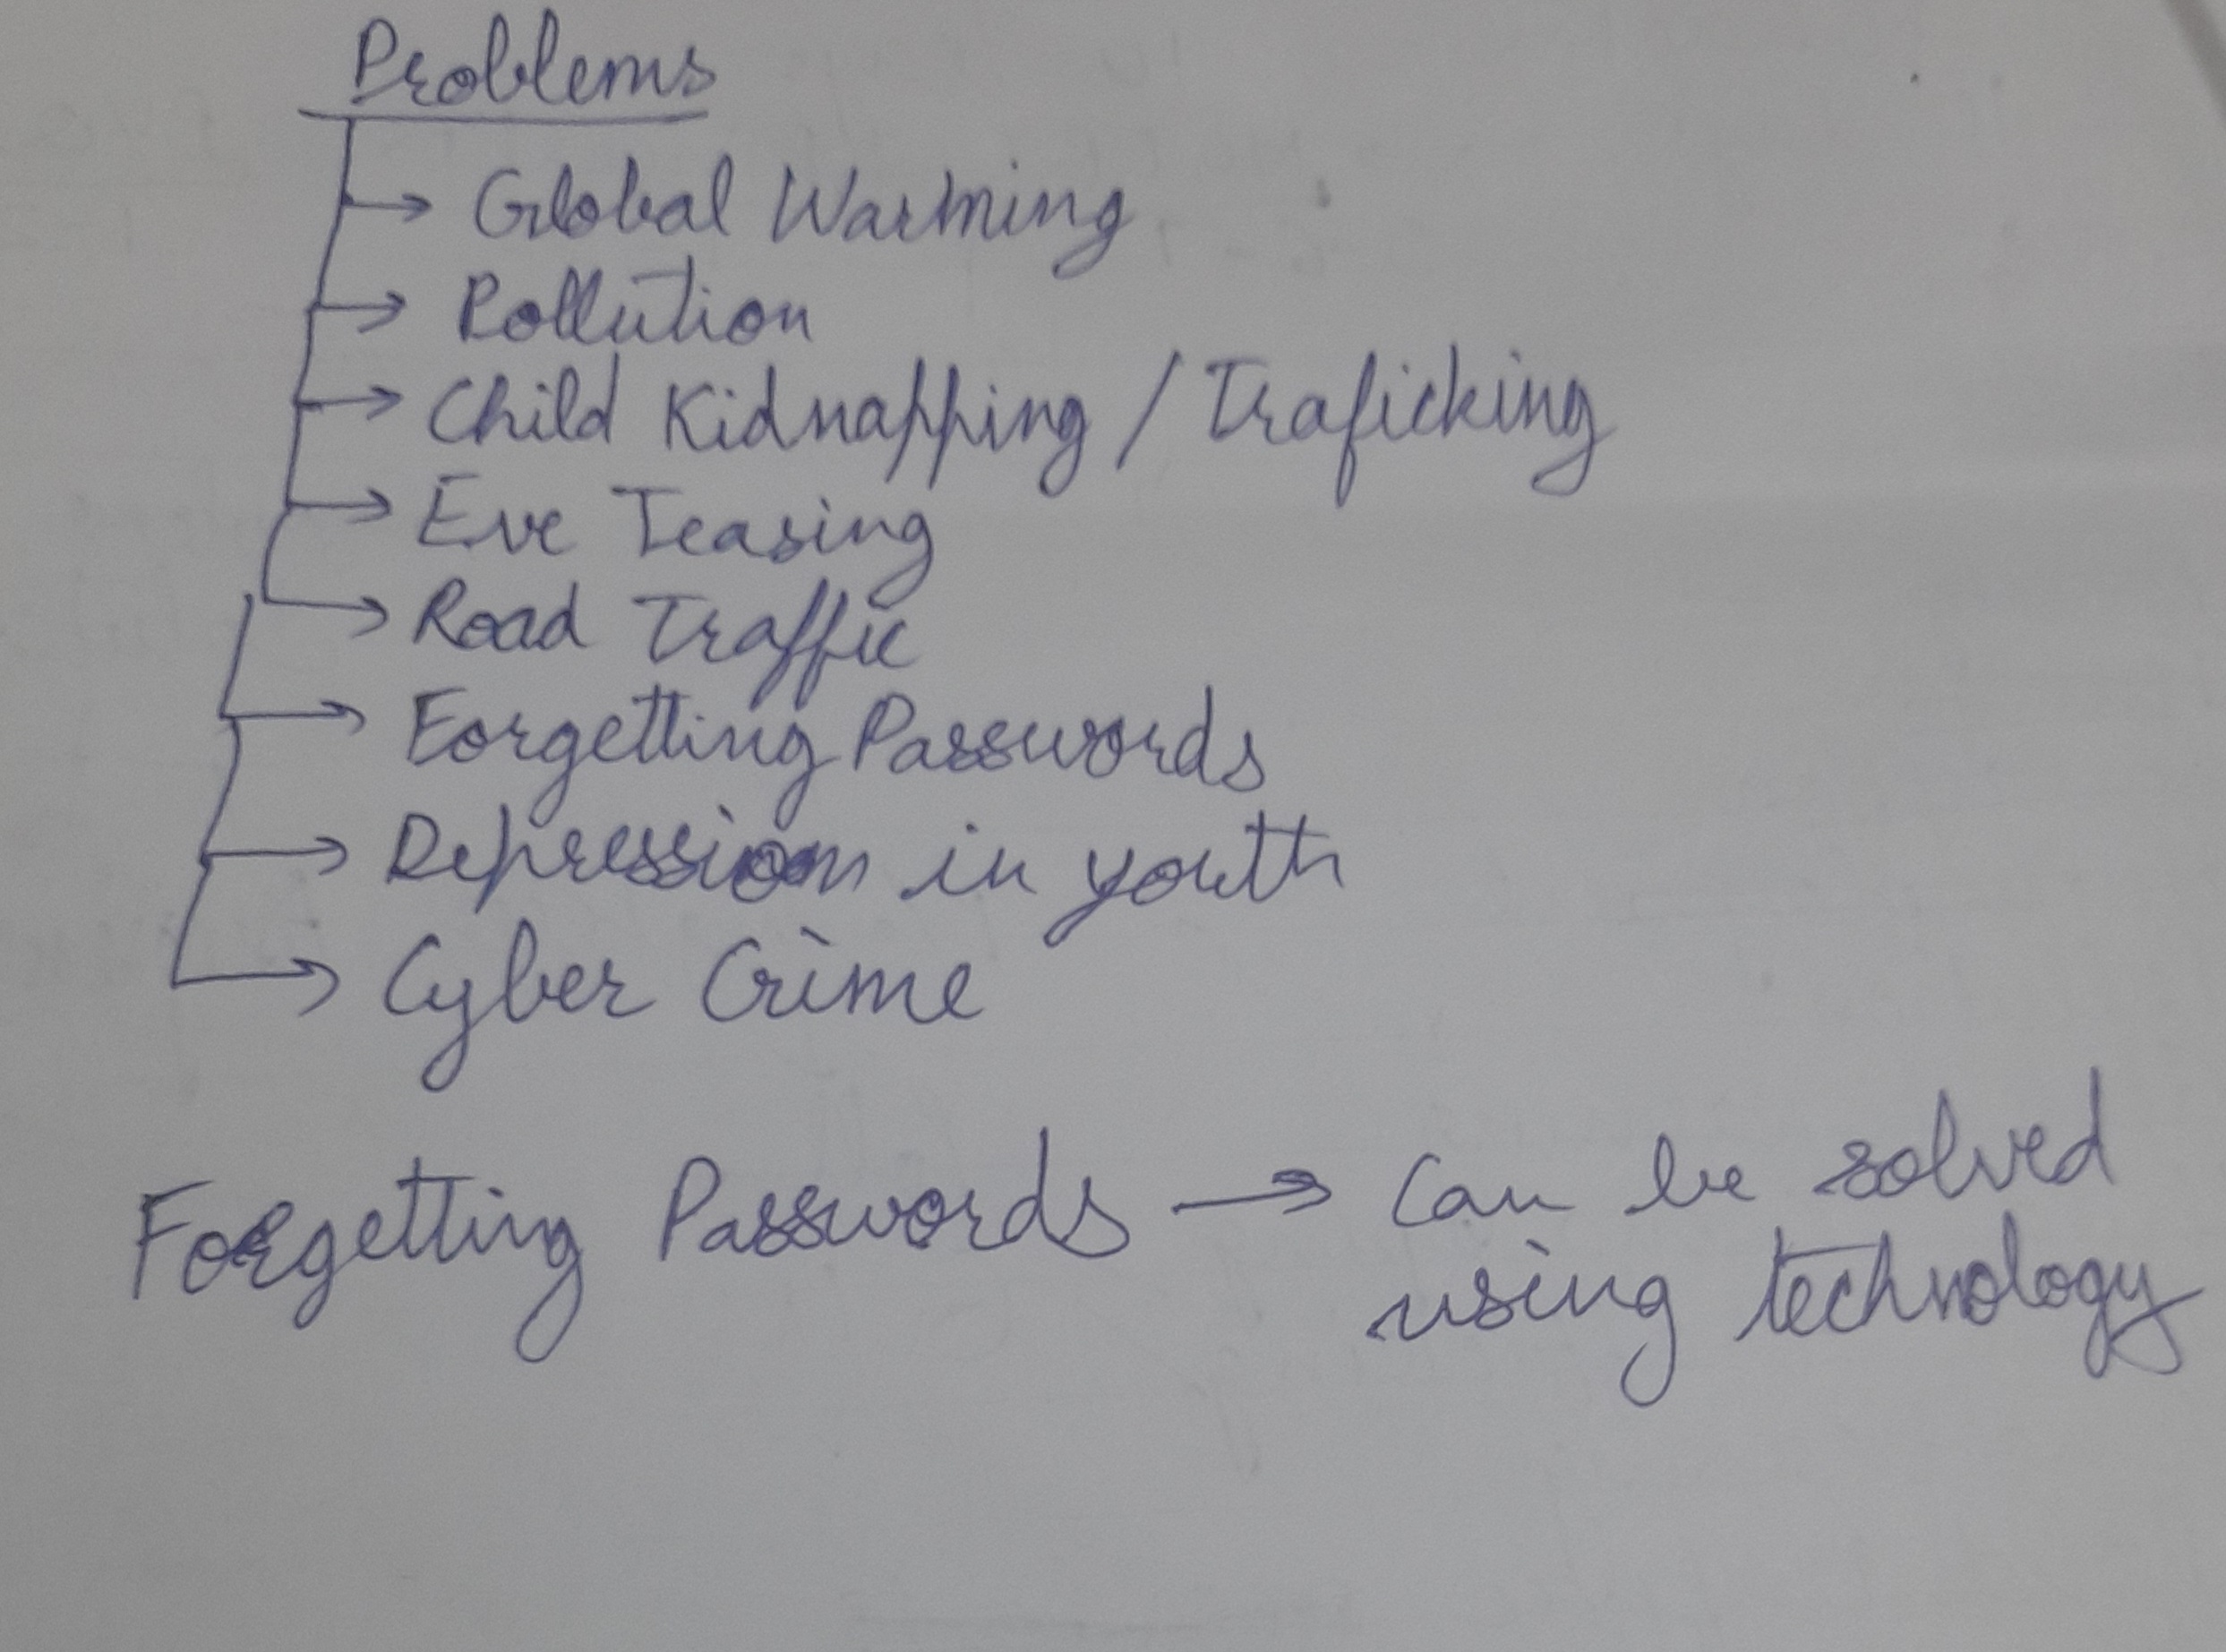 Problems
→ Global Warming
→ Pollution
→ Child Kidnapping / Traficking
→ Eve Teasing
→ Road Traffic
→ Forgetting Passwords
→ Depression in youth
→ Cyber Crime
Forgetting Passwords → Can be solved
using technology